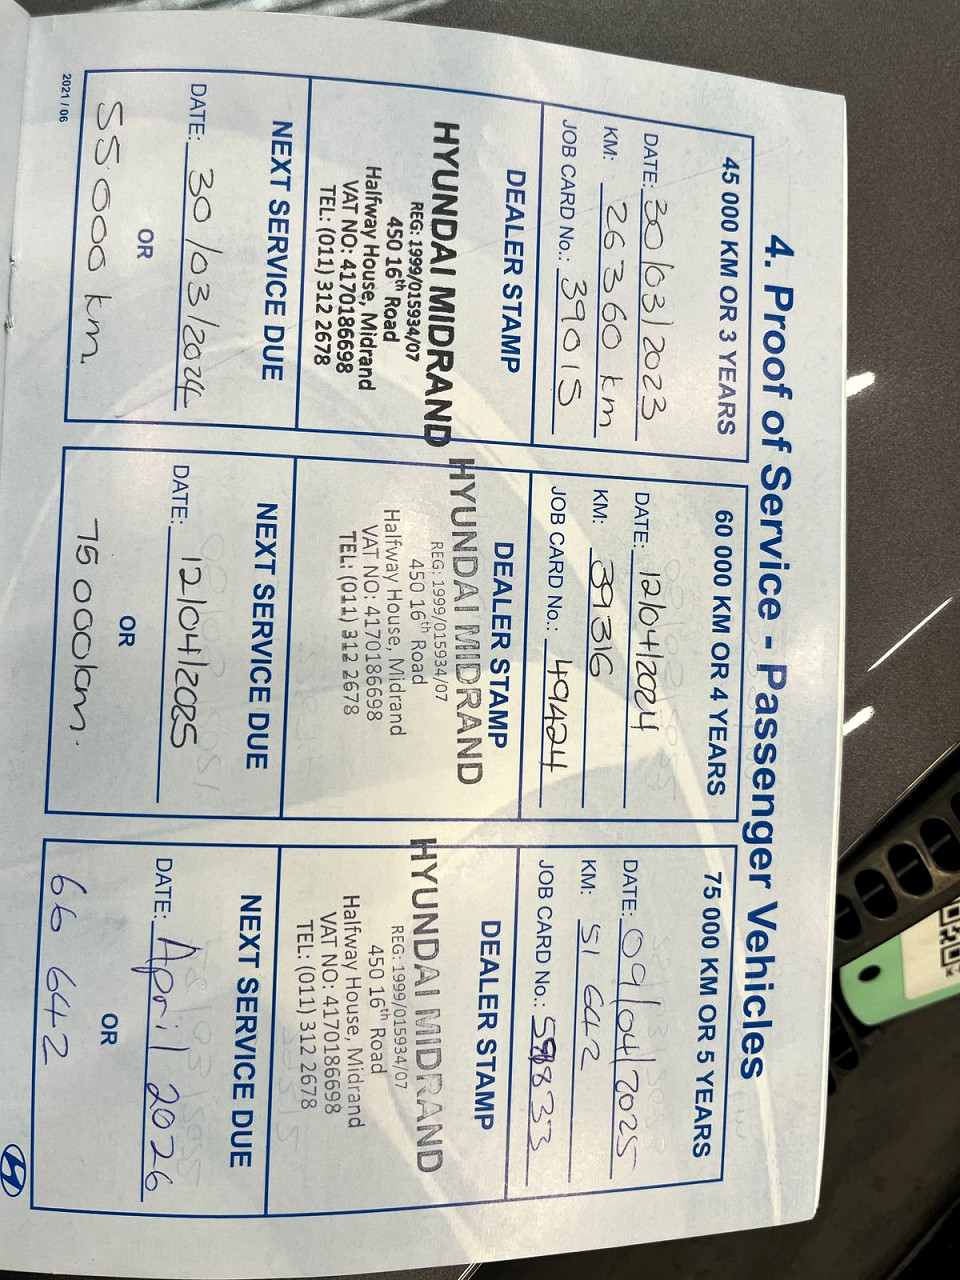 4. Proof of Service - Passenger Vehicles
45 000 KM OR 3 YEARS
DATE: 30/03/2023
KM: 26360 km
JOB CARD No.: 39015
DEALER STAMP
HYUNDAI MIDRAND
REG: 1999/015934/07
450 16th Road
Halfway House, Midrand
VAT NO: 4170186698
TEL: (011) 312 2678
NEXT SERVICE DUE
DATE: 30/03/2024
OR
55 000 km
60 000 KM OR 4 YEARS
DATE: 12/04/2024
KM: 39316
JOB CARD No.: 49424
DEALER STAMP
HYUNDAI MIDRAND
REG: 1999/015934/07
450 16th Road
Halfway House, Midrand
VAT NO: 4170186698
TEL: (011) 312 2678
NEXT SERVICE DUE
DATE: 12/04/2025
OR
75 000km.
75 000 KM OR 5 YEARS
DATE: 09/04/2025
KM: 51 642
JOB CARD No.:
DEALER STAMP
HYUNDAI MIDRAND
REG: 1999/015934/07
450 16th Road
Halfway House, Midrand
VAT NO: 4170186698
TEL: (011) 312 2678
NEXT SERVICE DUE
DATE: April 2026
OR
66 642
2021 / 06